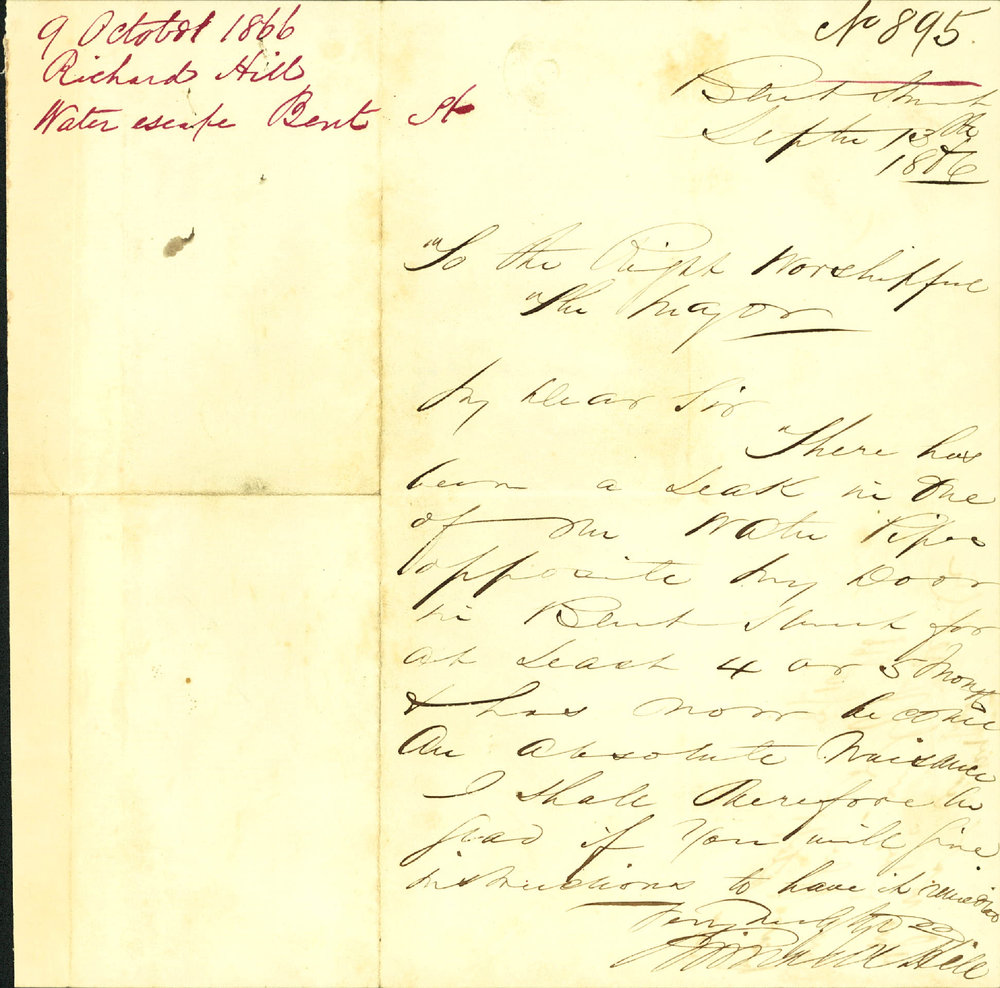 9 October 1866
Richard Hill
Water escape Bent St
No 895.
Bent Street
Septr 13th
1866
To the Right Worshipful
The Mayor
My Dear Sir
There has
been a Leak in One
of the Water Pipes
opposite my Door
in Bent Street for
at Least 4 or 5 Months
& has now become
An Absolute Nuisance
I shall Therefore be
glad if You will give
instructions to have it remedied
Very
Richard Hill